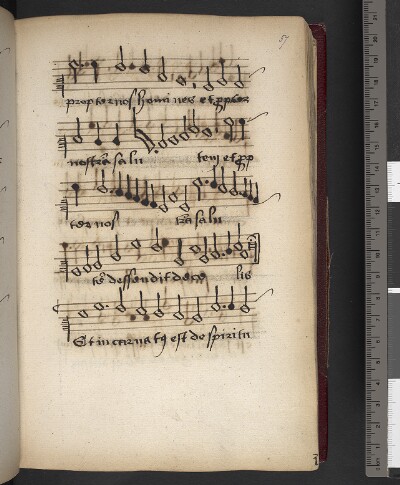 57
propter nos homi nes et ꝓpter
nostrã salu tem et ꝓp
ter nos trã salu
tẽ dessendit de ce lis
Et in carna tꝰ est de spiritu